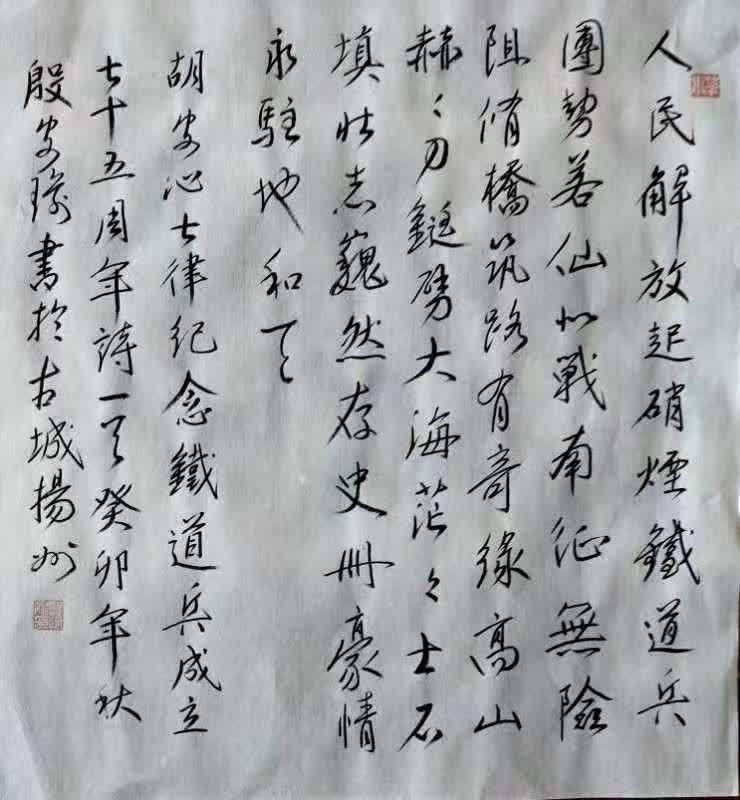 人民解放起硝煙鐵道兵
團勢若仙北戰南征無險
阻脩橋筑路有奇緣高山
赫々刀鋌劈大海茫々土石
填壯志巍然存史冊豪情
永駐地和天
胡安心七律紀念鐵道兵成立
七十五周年詩一首癸卯年秋
殷安瑜書於古城揚州